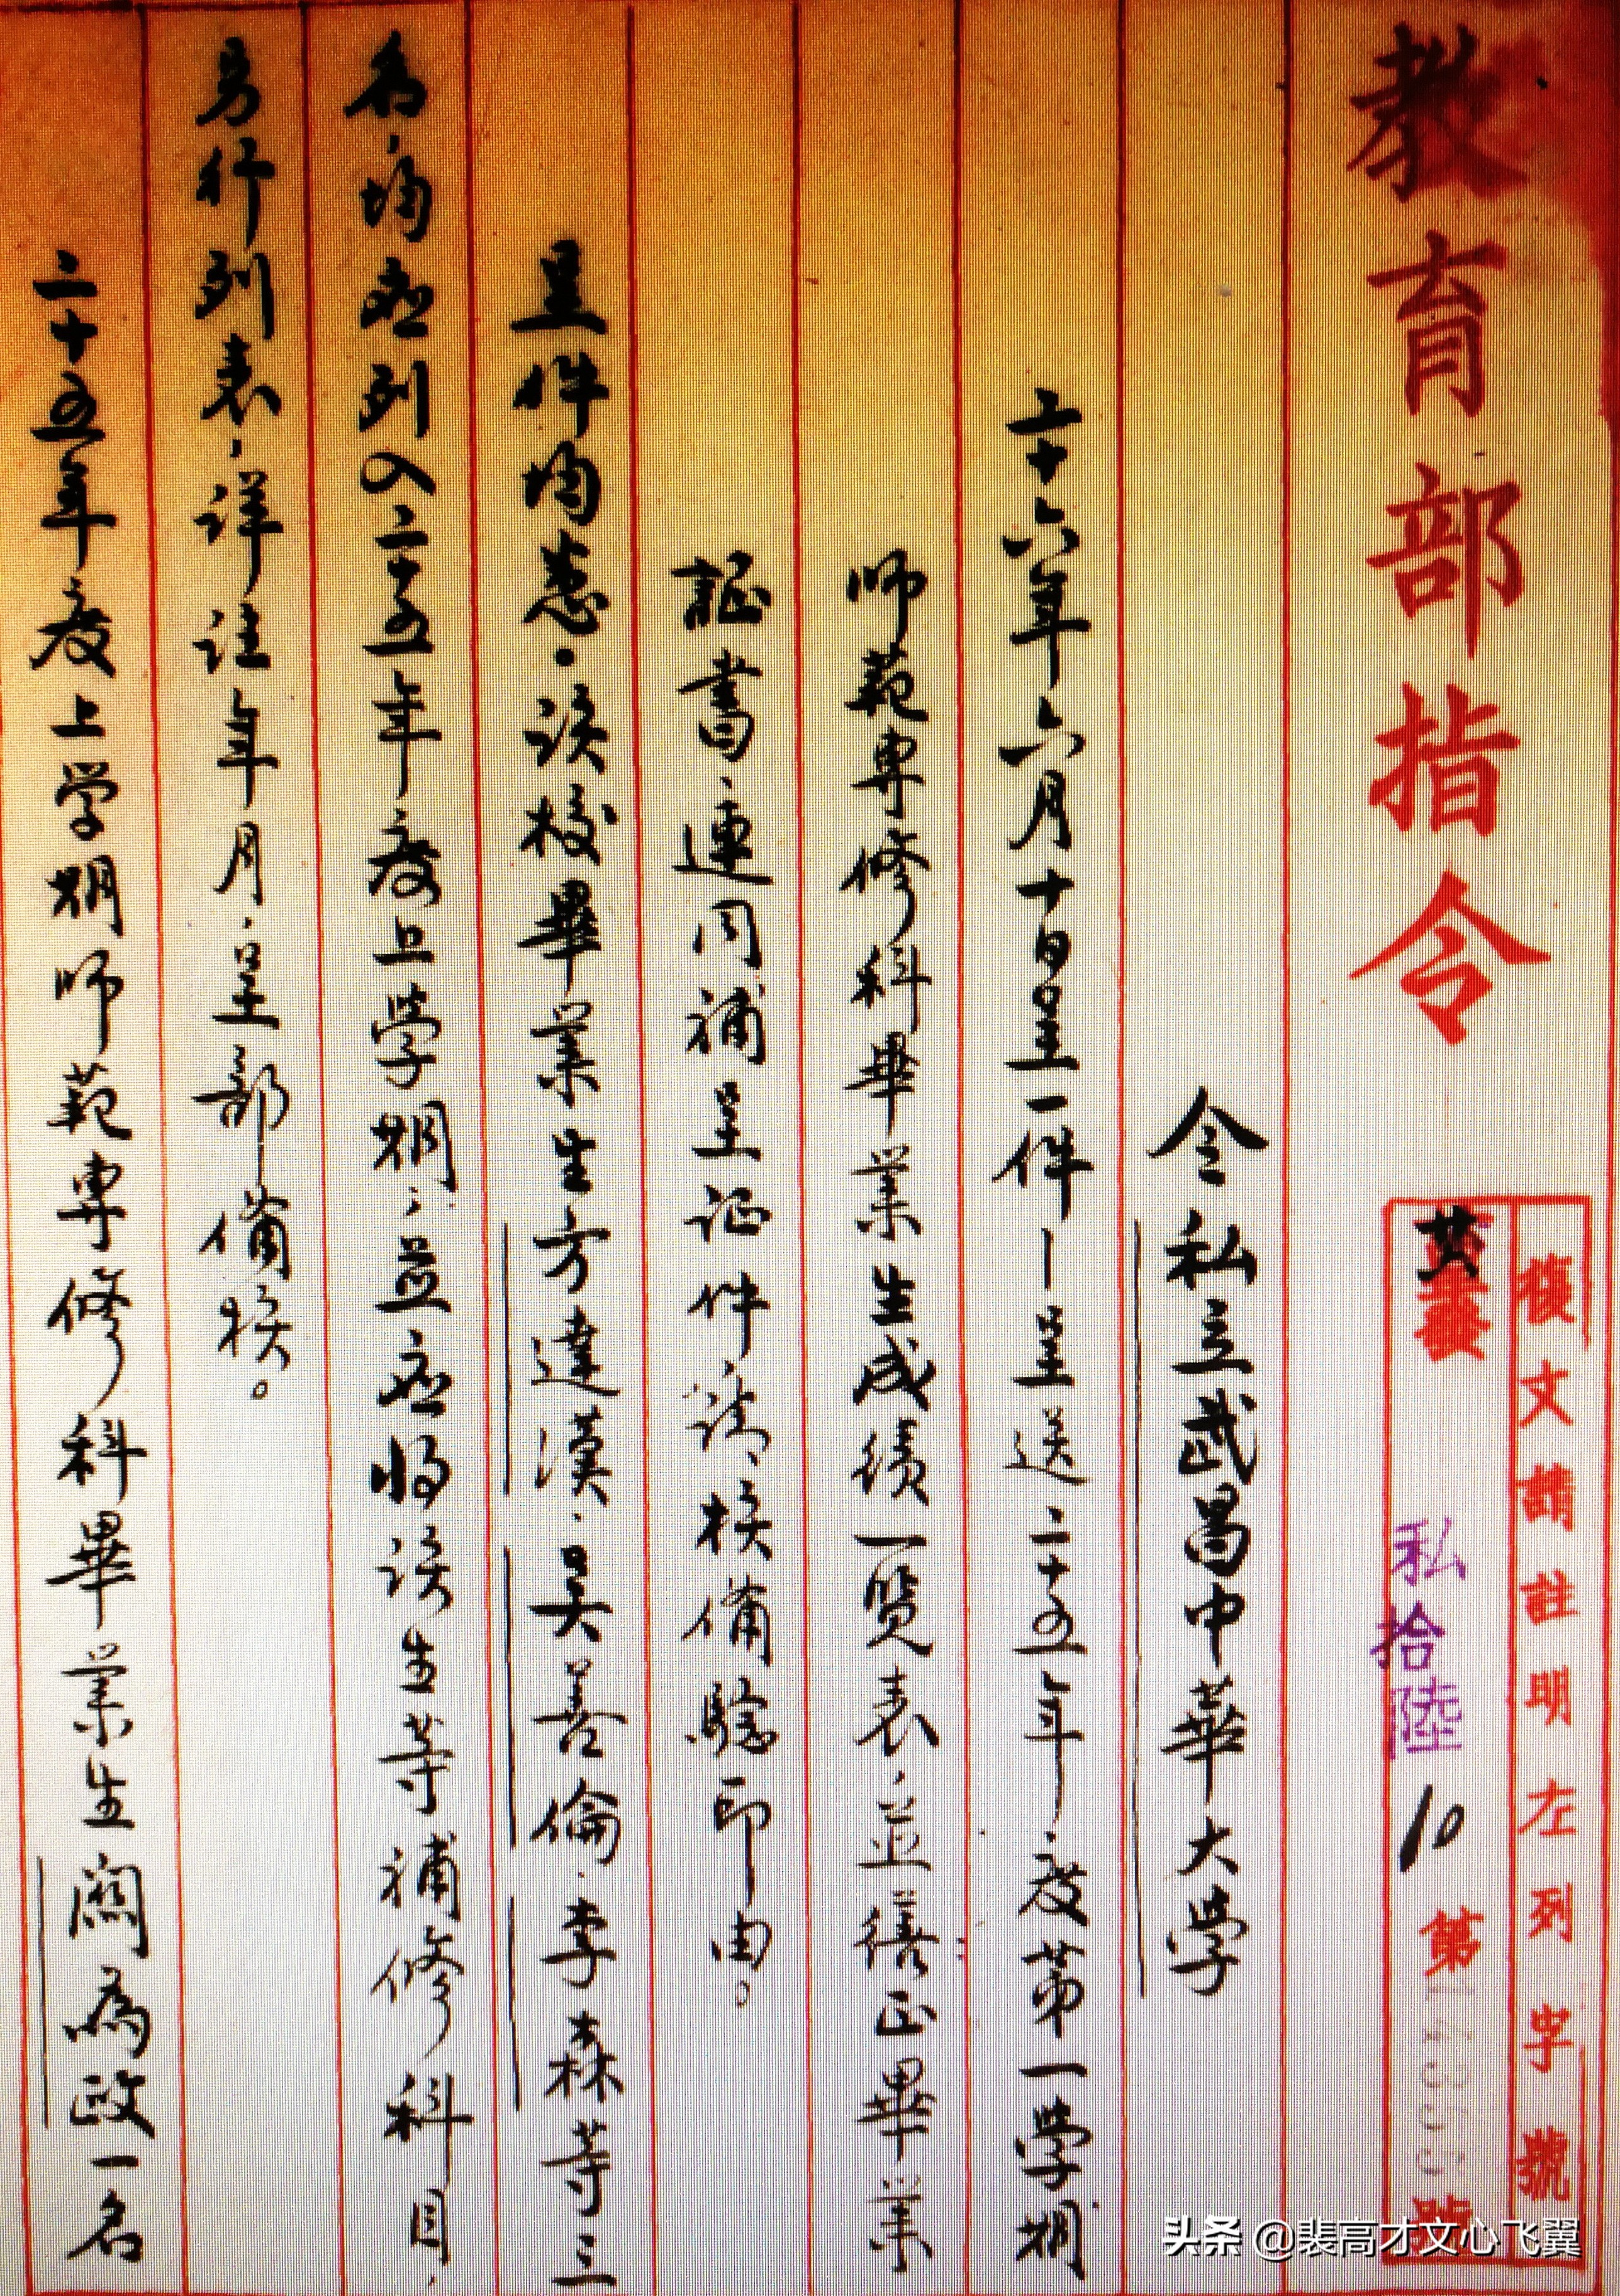 教育部指令
復文請註明左列字號
私拾陸10第號
令私立武昌中華大学
二十六年六月十日呈一件—呈送二十五年度第一學期
师範專修科畢業生成绩一览表、並繕正畢業
証書、連同補呈证件请核備驗印由。
呈件均悉．该校畢業生方達漢．吴善倫．李森等三
名，均应列入二十五年度上學期；並应将该生等補修科目，
另行列表，详註年月，呈部備核。
二十五年度上学期师範專修科畢業生闕為政一名
头条 @裴高才文心飞翼